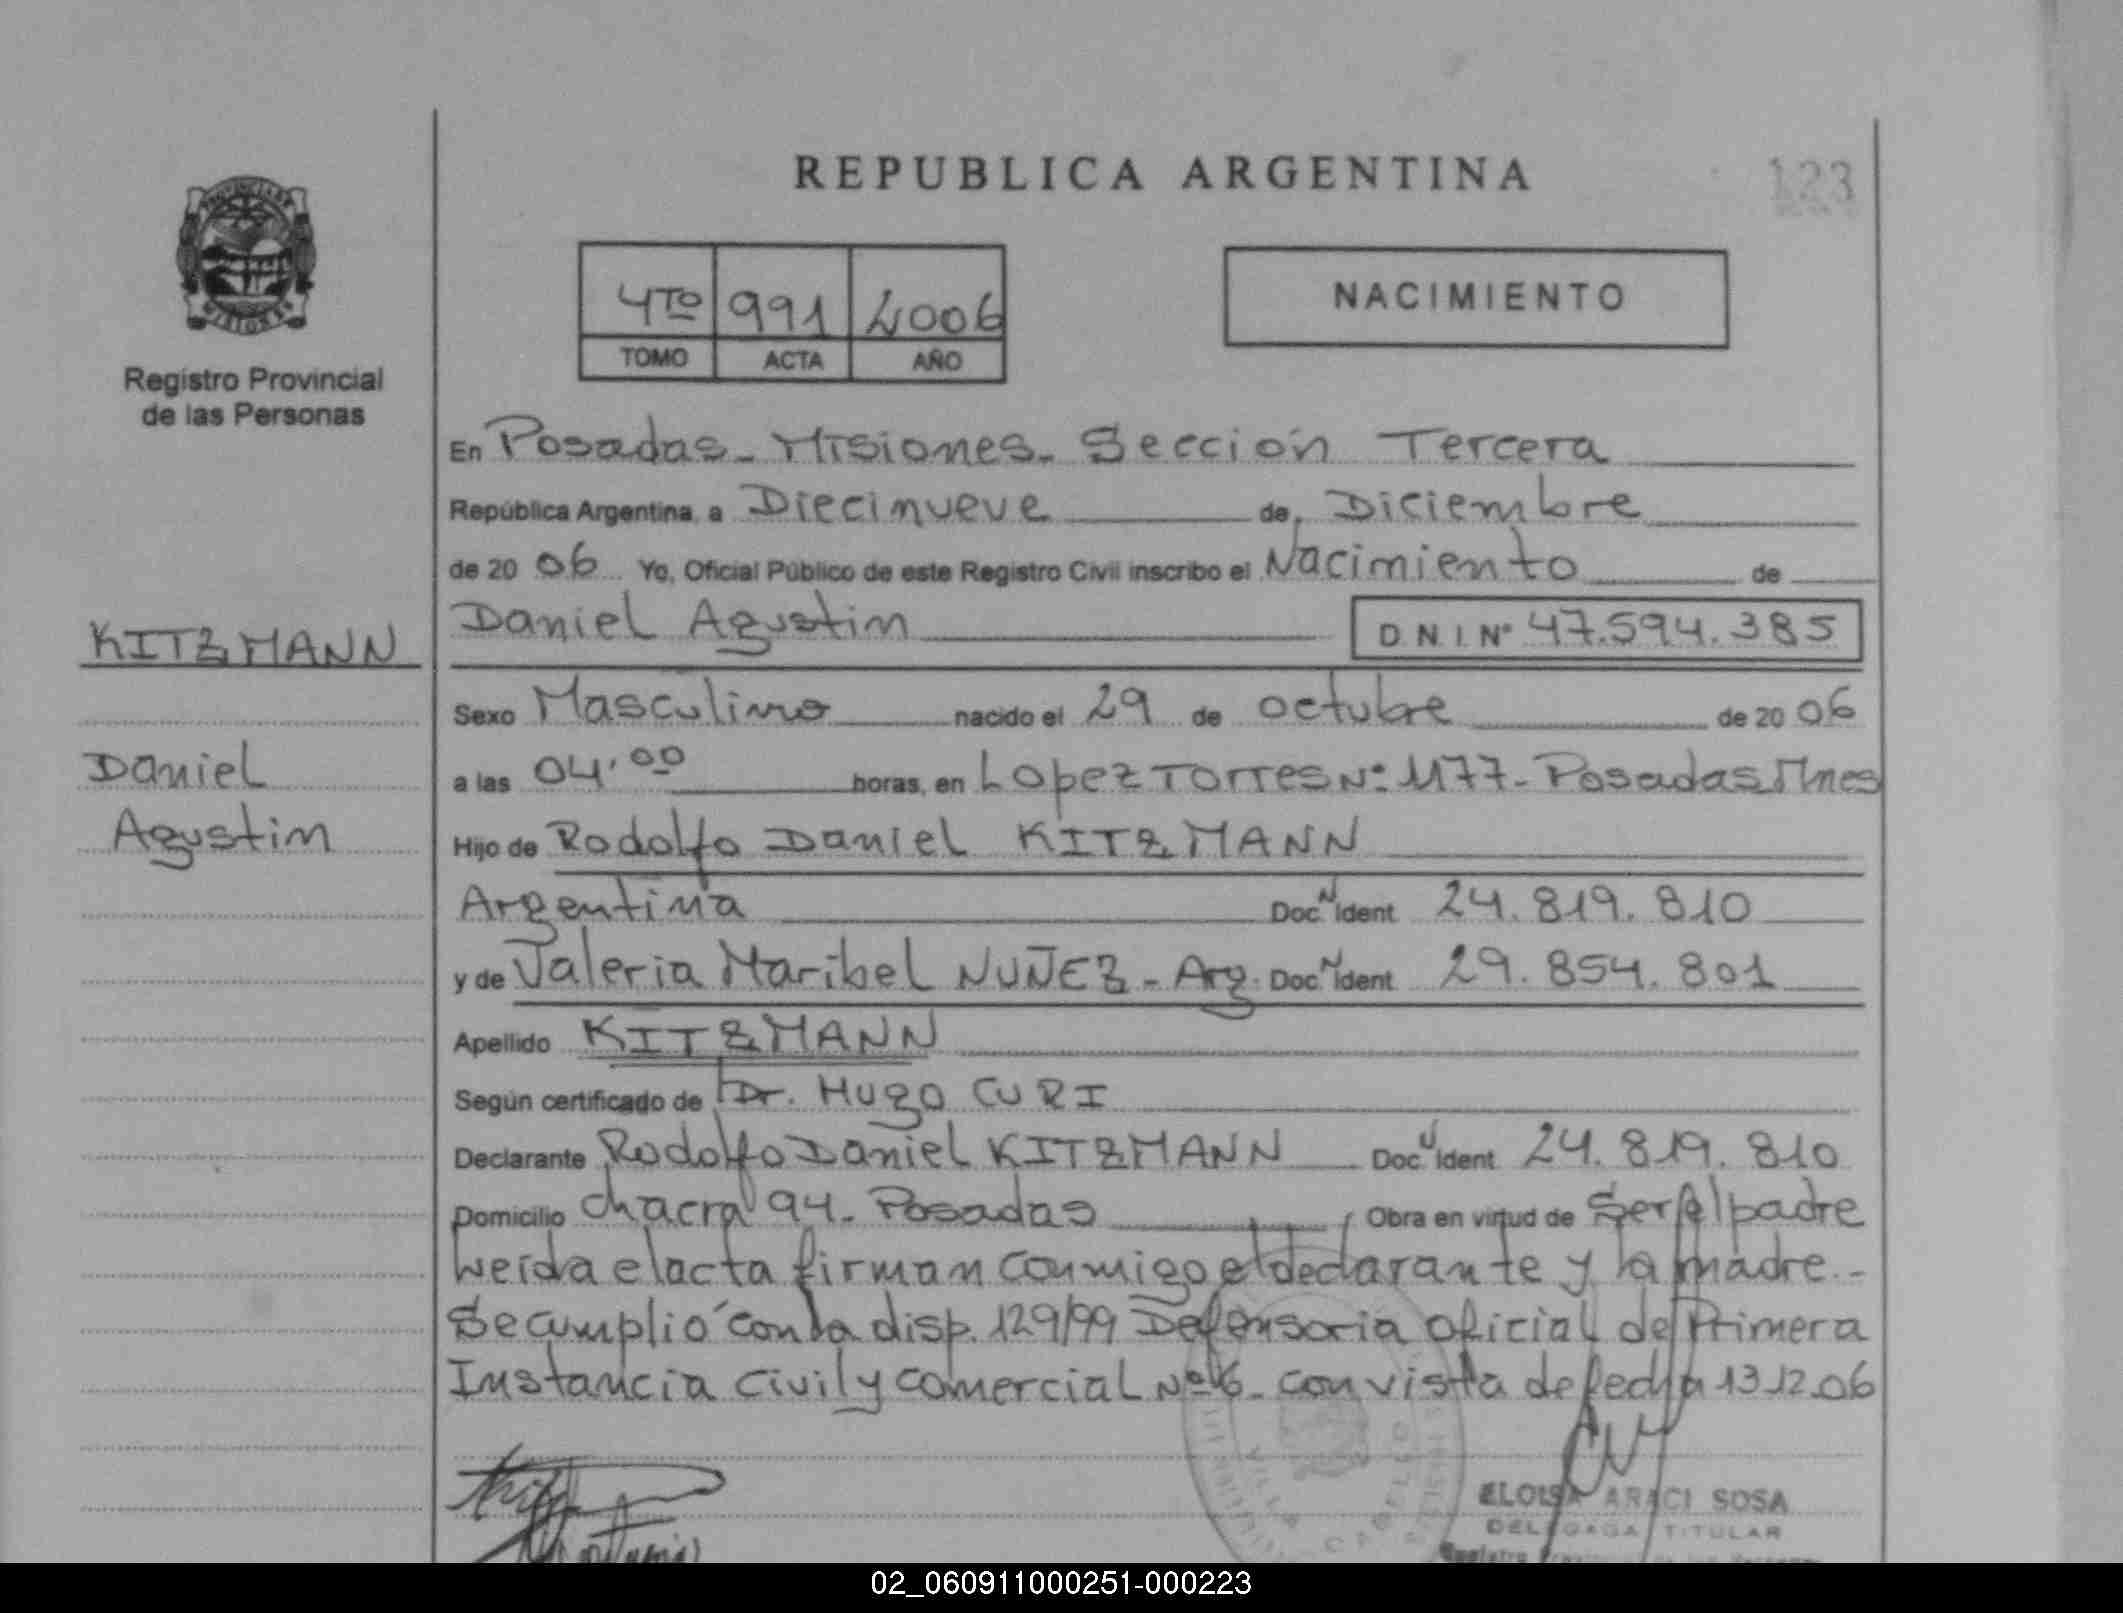 REPUBLICA ARGENTINA
123
4TO 991 2006
TOMO ACTA AÑO
NACIMIENTO
Registro Provincial
de las Personas
En Posadas - Misiones - Sección Tercera
República Argentina, a Diecinueve de Diciembre
de 20 06 Yo, Oficial Público de este Registro Civil inscribo el Nacimiento de
KITZMANN
Daniel
Agustin
Daniel Agustin D.N.I. Nº 47.594.385
Sexo Masculino nacido el 29 de octubre de 20 06
a las 04,00 horas, en Lopez Torres Nº 1177 - Posadas Mnes
Hijo de Rodolfo Daniel KITZMANN
Argentina Doc. N Ident 24.819.810
y de Valeria Maribel NUÑEZ - Arg. Doc. N Ident 29.854.801
Apellido KITZMANN
Según certificado de Dr. Hugo CURI
Declarante Rodolfo Daniel KITZMANN Doc. N Ident 24.819.810
Domicilio chacra 94 - Posadas Obra en virtud de Ser el padre
Leída el acta firman conmigo el declarante y la madre.-
Se cumplió con la disp. 129/99 Defensoria oficial de Primera
Instancia Civil y Comercial Nº 6 - con vista de fecha 13.12.06
VILLA CABELLO
ELOISA ARACI SOSA
DELEGADA TITULAR
02_060911000251-000223